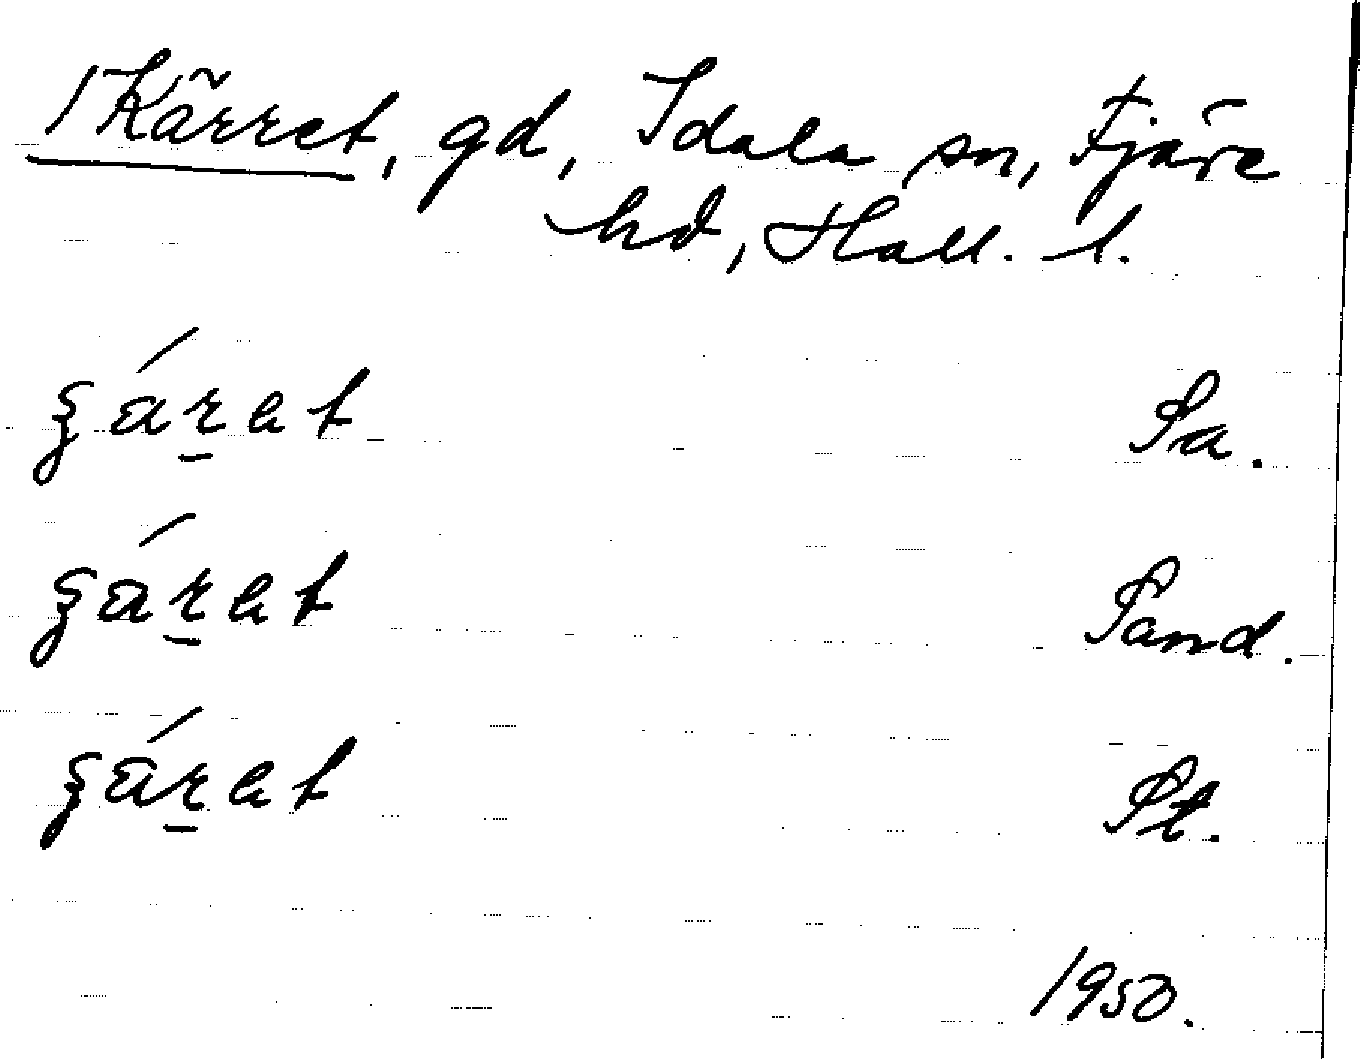 1 Kärret, gd, Idala sn, Fjäre
hd, Hall. l.
ʂárat Sa.
ʂárat Sand.
ʂárat St.
1950.